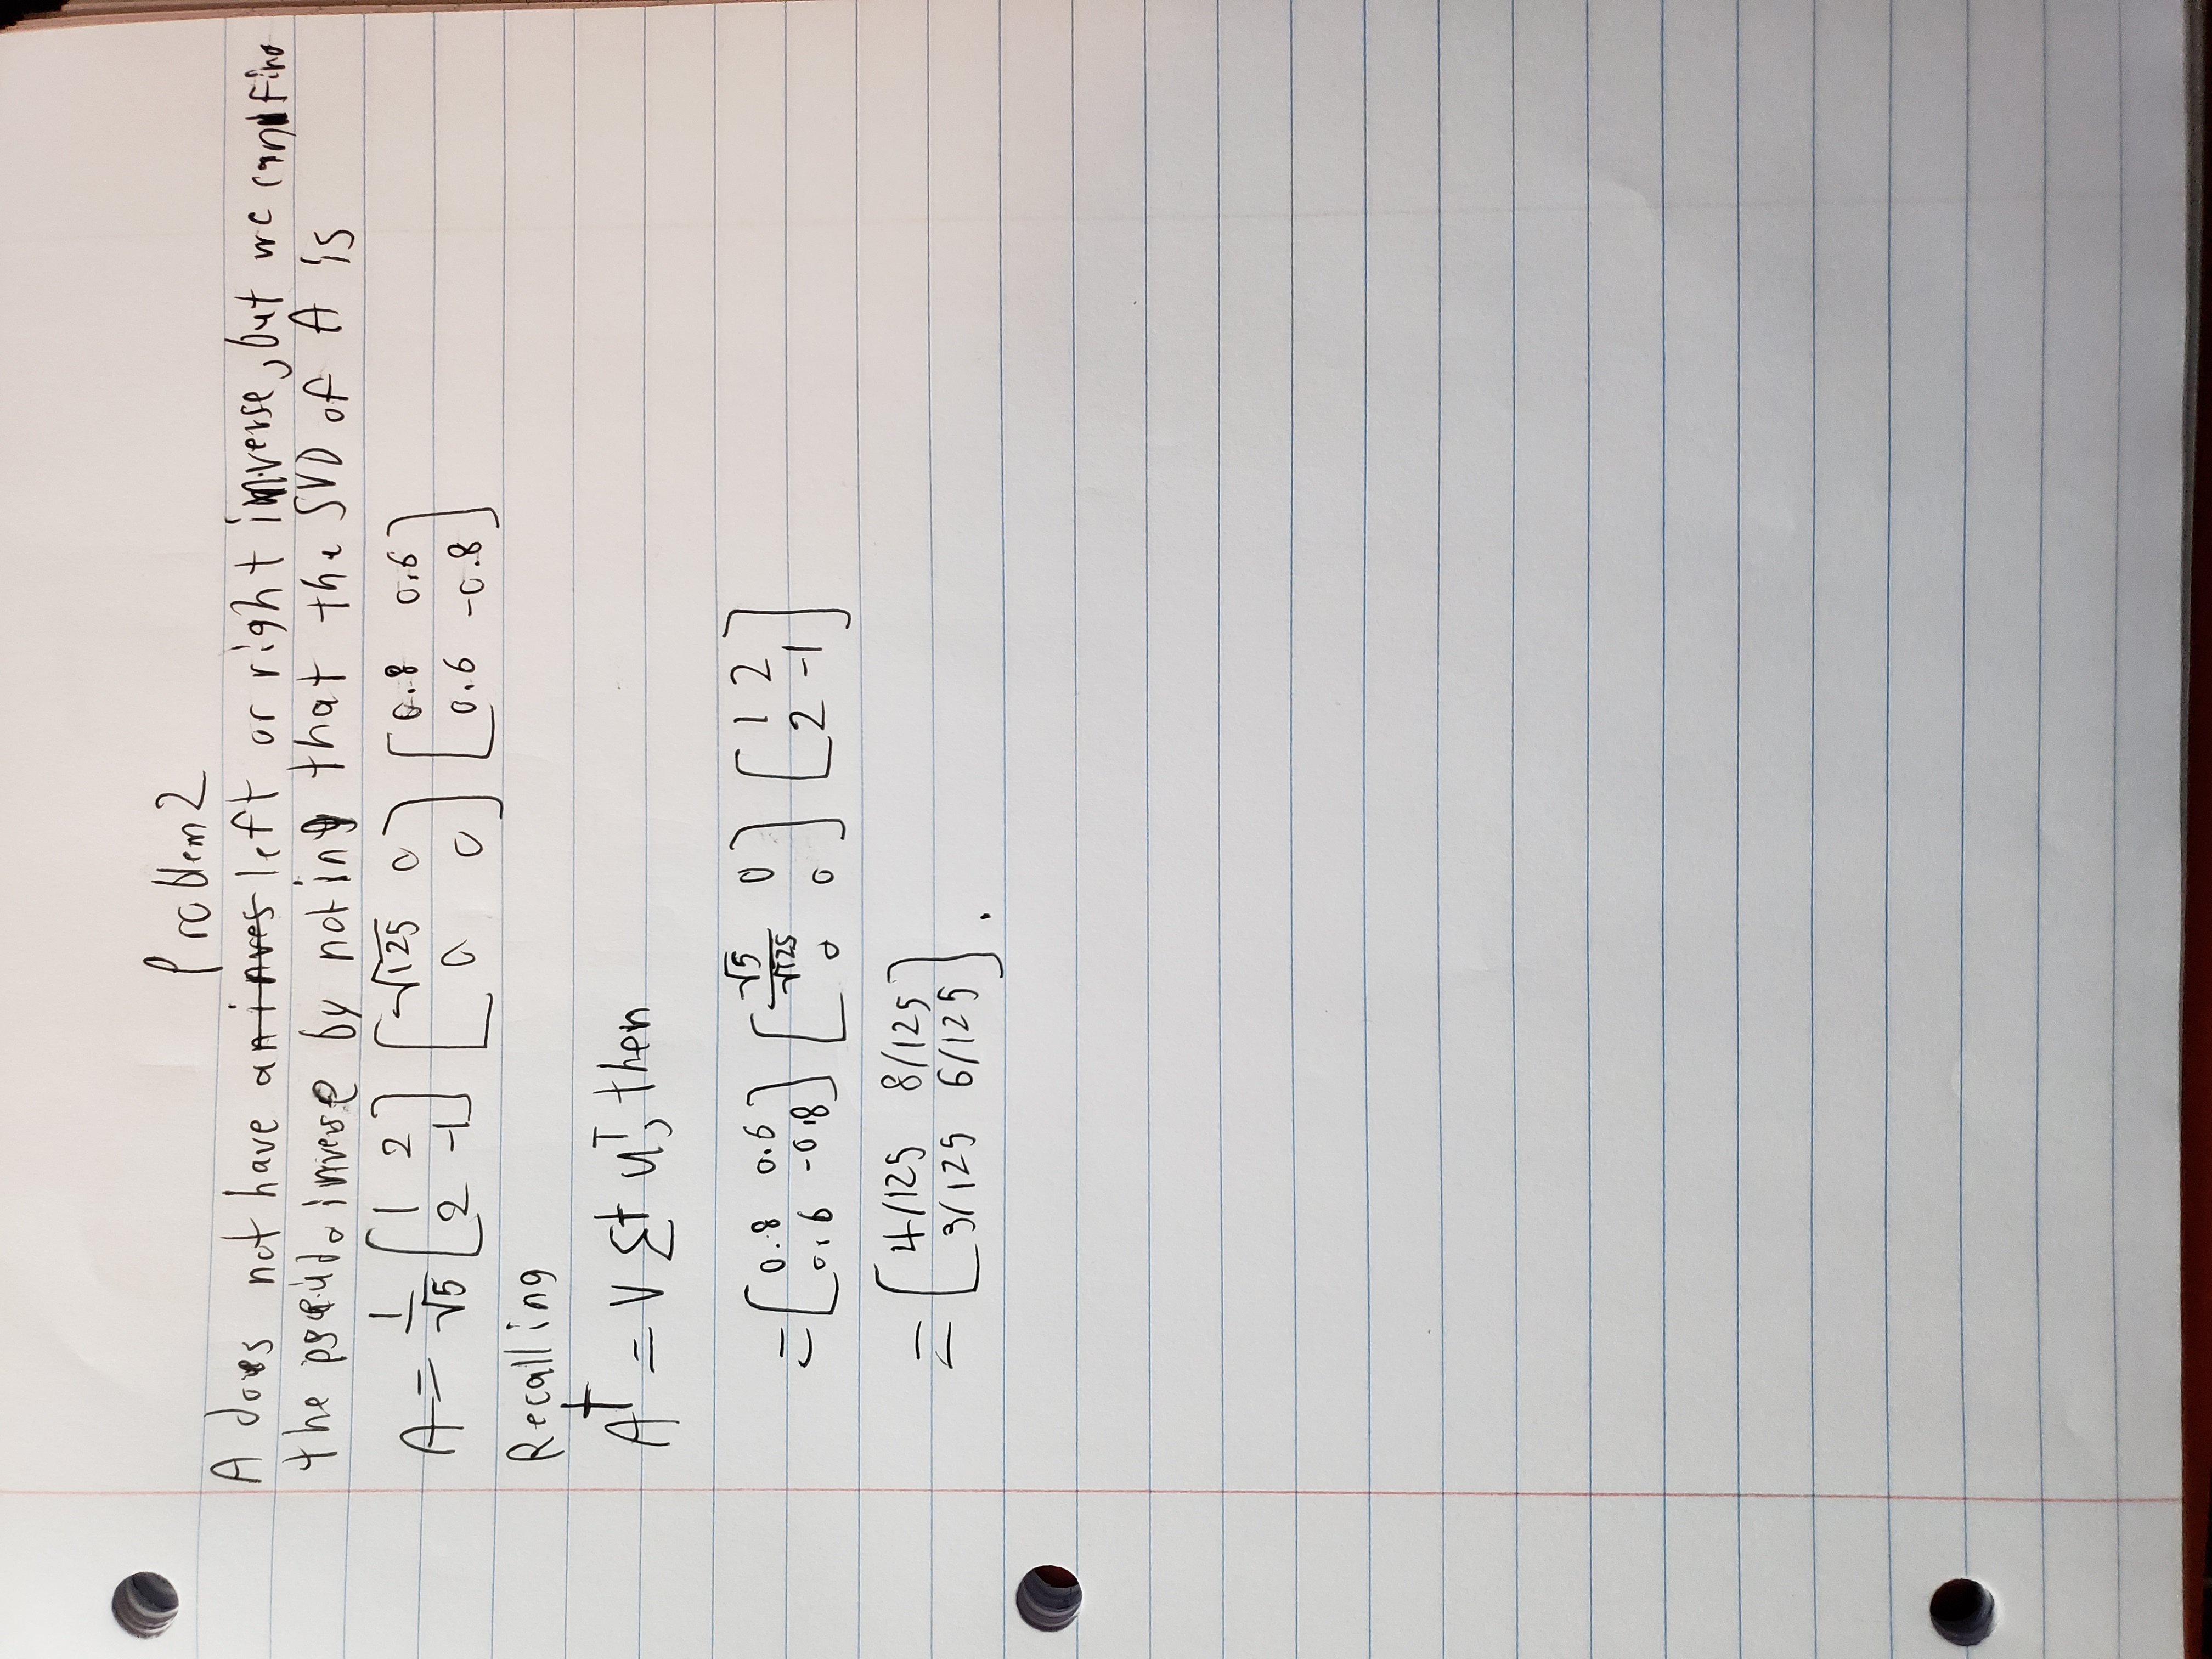 Problem 2
A does not have an inves left or right inverse, but we can find
the pseudoinverse by noting that the SVD of A is
A = 1/√5 [1 2; 2 -1] [√125 0; 0 0] [0.8 0.6; 0.6 -0.8]
Recalling
A† = V Σ† Uᵀ, then
= [0.8 0.6; 0.6 -0.8] [√5/√125 0; 0 0] [1 2; 2 -1]
= [4/125 8/125; 3/125 6/125].